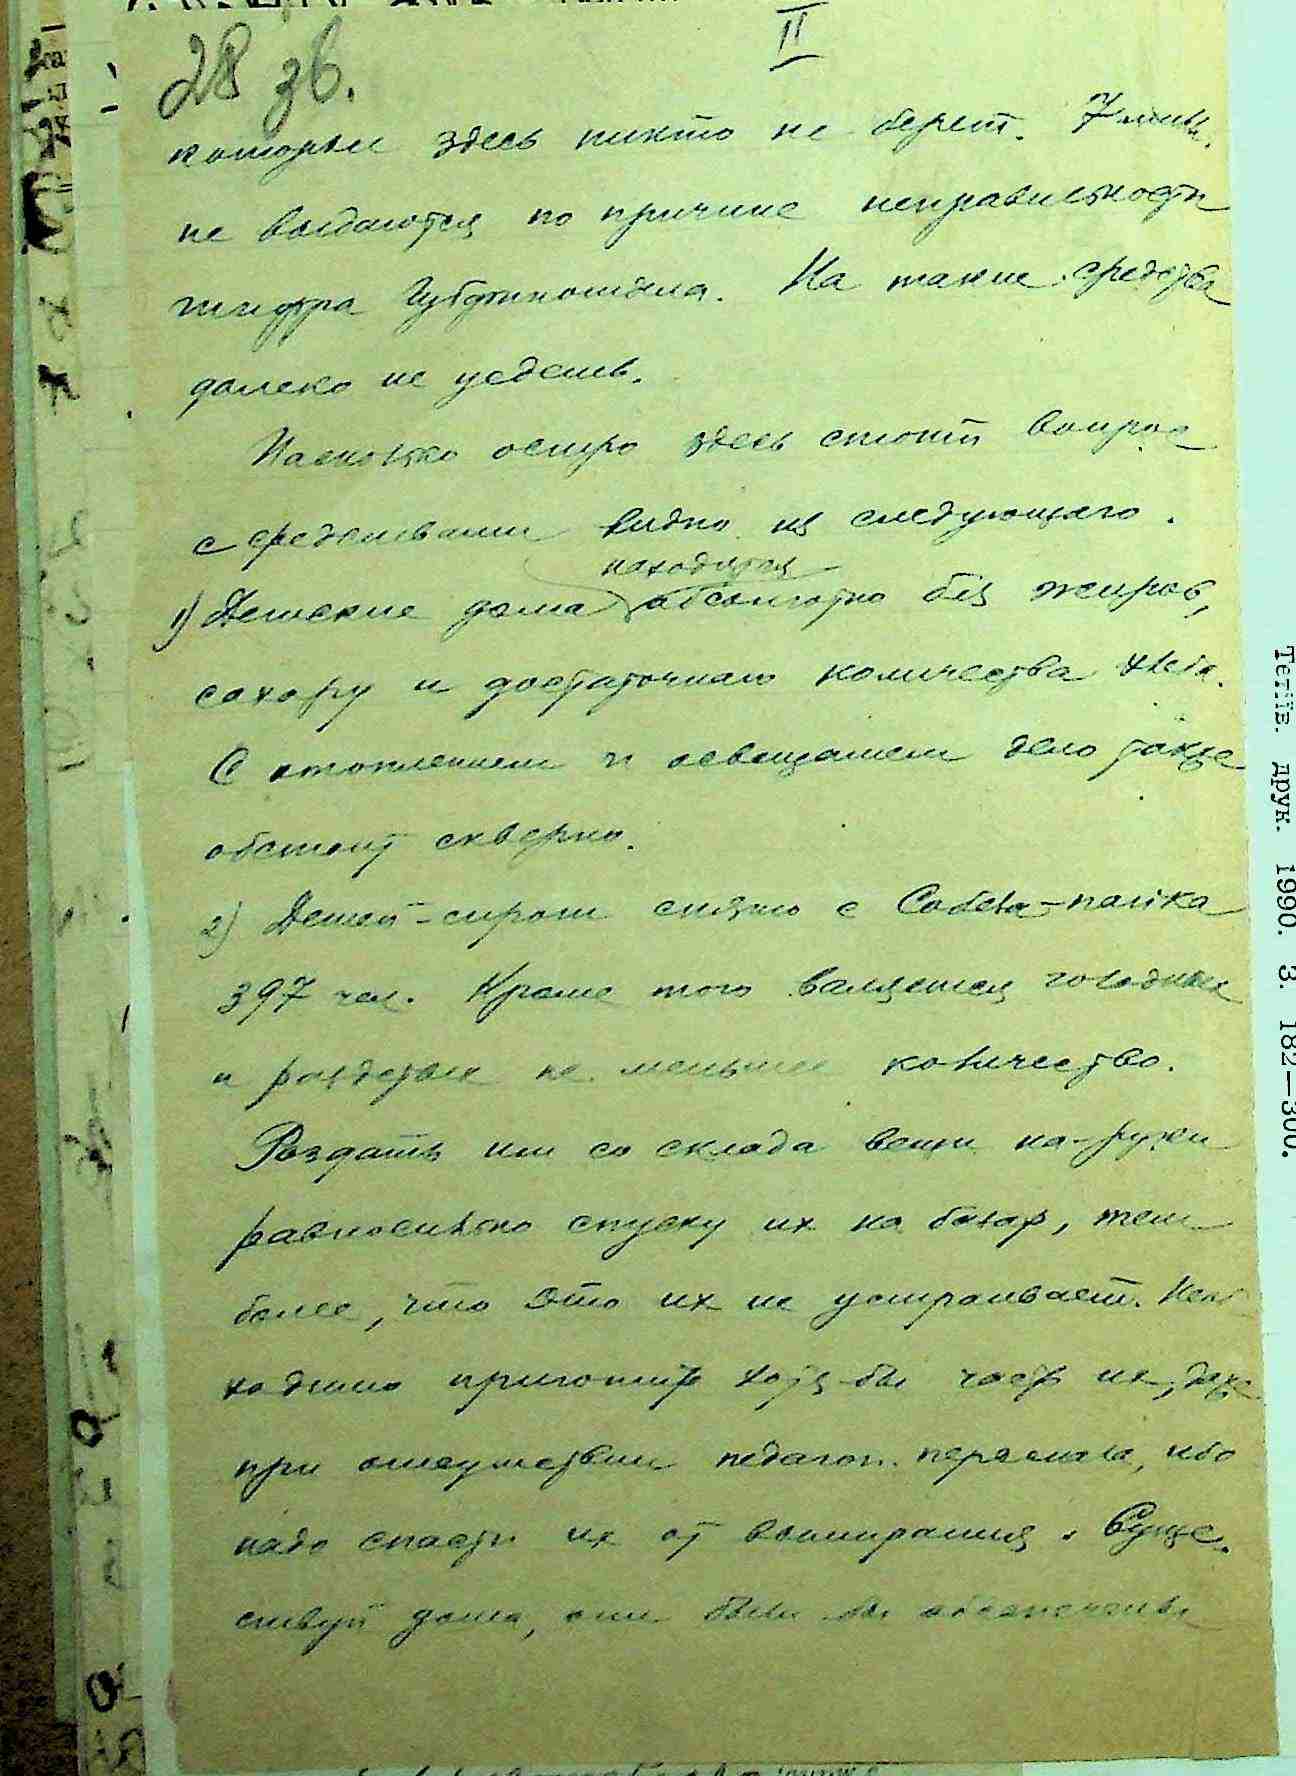 28 зв.
II
которых здесь никто не берет. 7 милл.
не выдаются по причине неправильности
шифра Губфинотдела. На такие средства
далеко не уедешь.
Насколько остро здесь стоит вопрос
с средствами видно из следующего.
находятся
1) Детские дома абсолютно без жиров,
сахару и достаточного количества хлеба.
С отоплением и освещением дело также
обстоит скверно.
2) Детей-сирот снято с Собеса-пайка
397 чел. Кроме того валяется голодных
и раздетых не меньшее количество.
Раздать им со склада вещи на-руки
равносильно спуску их на базар, тем
более, что это их не устраивает. Необ
ходимо приютить хотя-бы часть их, даже
при отсутствии педагог. персонала, ибо
надо спасти их от вымирания. Суще-
ствуй дома, они были бы обеспечены
Тернів. друк. 1990. З. 182—300.